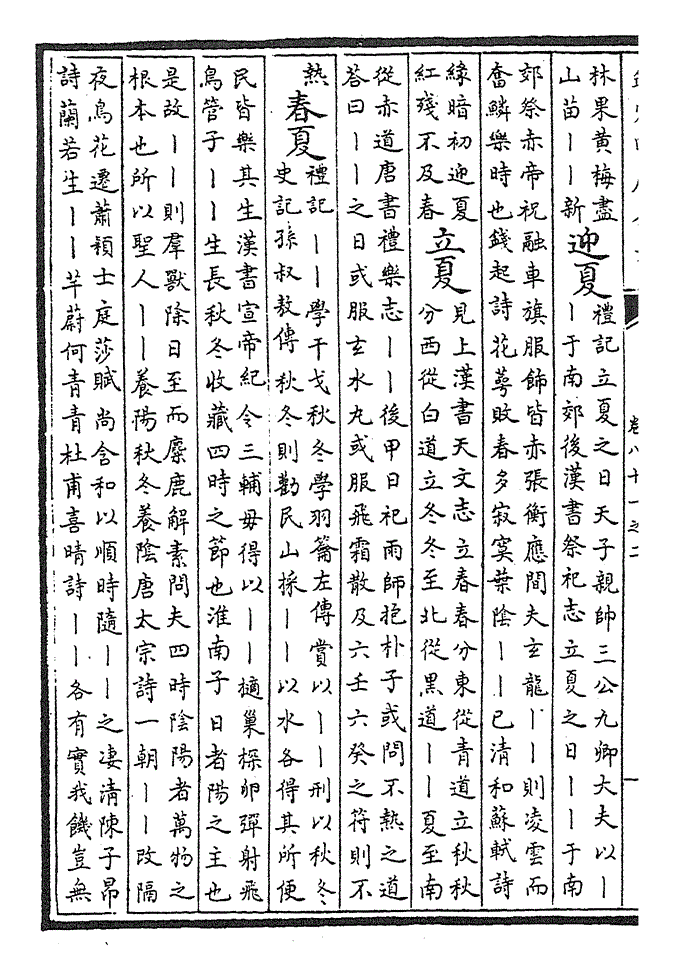 卷八十一之二
一
林果黄梅盡
山苗丨丨新
迎夏
禮記立夏之日天子親帥三公九卿大夫以丨
丨于南郊後漢書祭祀志立夏之日丨丨于南
郊祭赤帝祝融車旗服飾皆赤張衡應間夫玄龍丨丨則凌雲而
奮鱗樂時也錢起詩花萼敗春多寂寞葉陰丨丨已清和蘇軾詩
緑暗初迎夏
紅殘不及春
立夏
見上漢書天文志立春春分東從青道立秋秋
分西從白道立冬冬至北從黑道丨丨夏至南
從赤道唐書禮樂志丨丨後甲日祀雨師抱朴子或問不熱之道
荅曰丨丨之日或服玄水丸或服飛霜散及六壬六癸之符則不
熱
春夏
禮記丨丨學干戈秋冬學羽籥左傳賞以丨丨刑以秋冬
史記孫叔敖傳秋冬則勸民山採丨丨以水各得其所便
民皆樂其生漢書宣帝紀令三輔毋得以丨丨擿巢探卵彈射飛
鳥管子丨丨生長秋冬收藏四時之節也淮南子日者陽之主也
是故丨丨則羣獸除日至而麋鹿解素問夫四時陰陽者萬物之
根本也所以聖人丨丨養陽秋冬養陰唐太宗詩一朝丨丨改隔
夜鳥花遷蕭穎士庭莎賦尚含和以順時隨丨丨之凄清陳子昂
詩蘭若生丨丨芊蔚何青青杜甫喜晴詩丨丨各有實我饑豈無